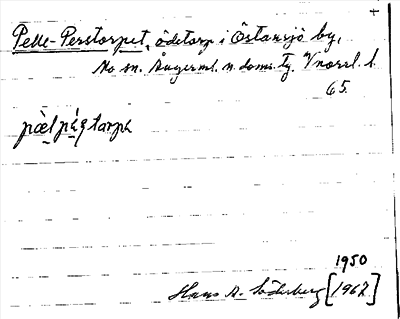 +
Pelle-Perstorpet, ödetorp i Östansjö by,
No sn. Ångerml. n. doms. tg. V norrl. l.
65.
1950
Hans A. Söderberg [1967]